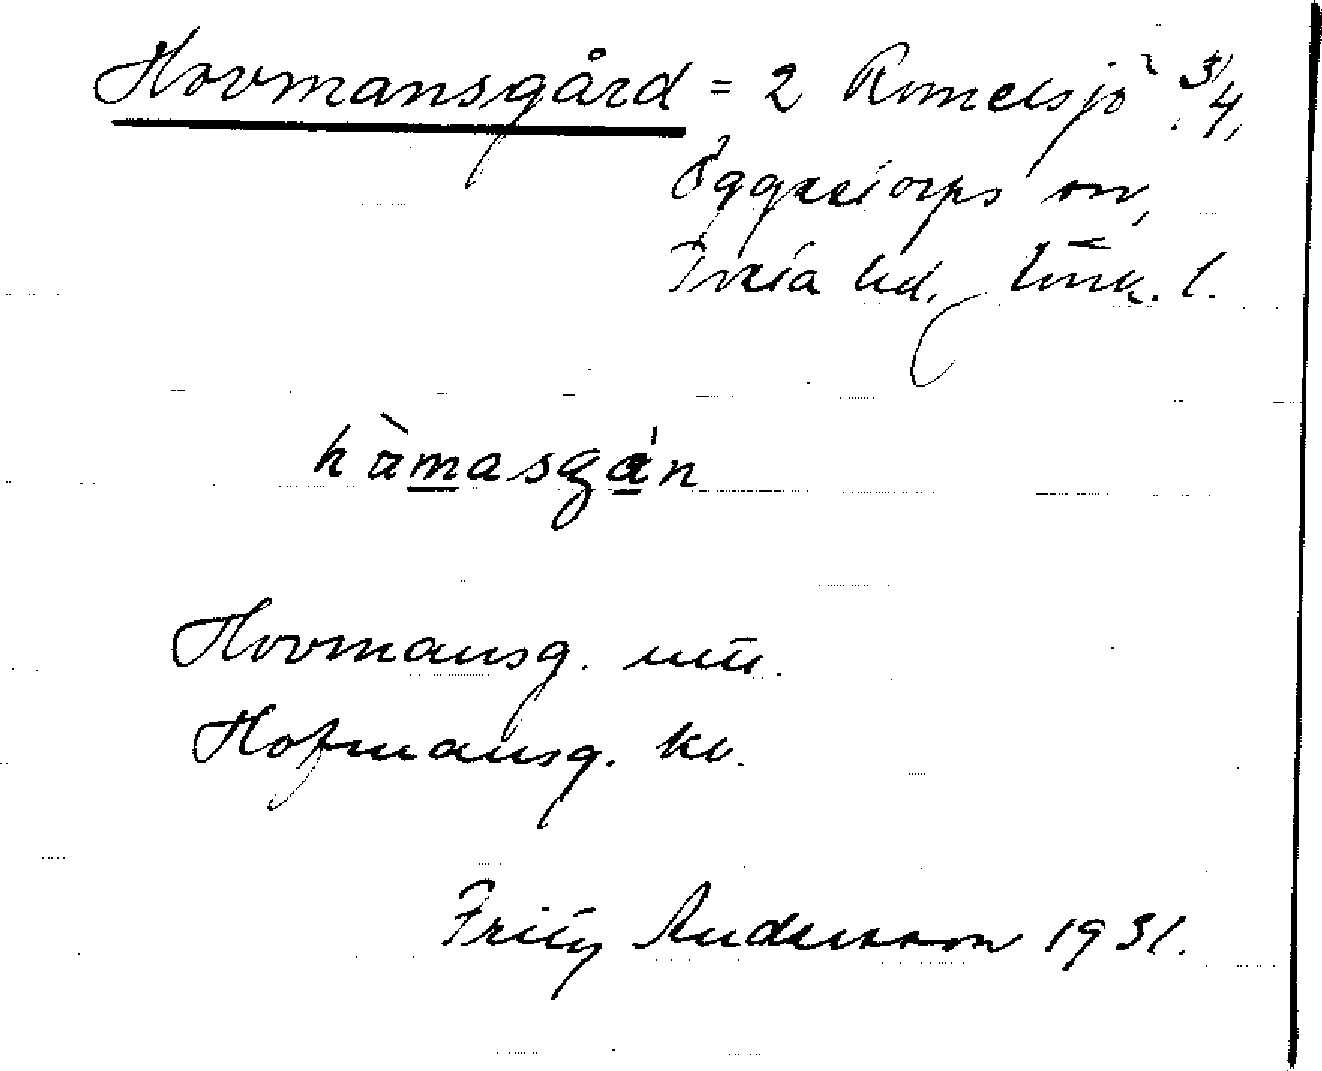 Hovmansgård = 2 Romelsjö 3/4,
Öggestorps sn,
Tveta hd, Jönk. l.
hàmasgán
Hovmansg. utt.
Hofmansg. kv.
Fritz Andersson 1931.